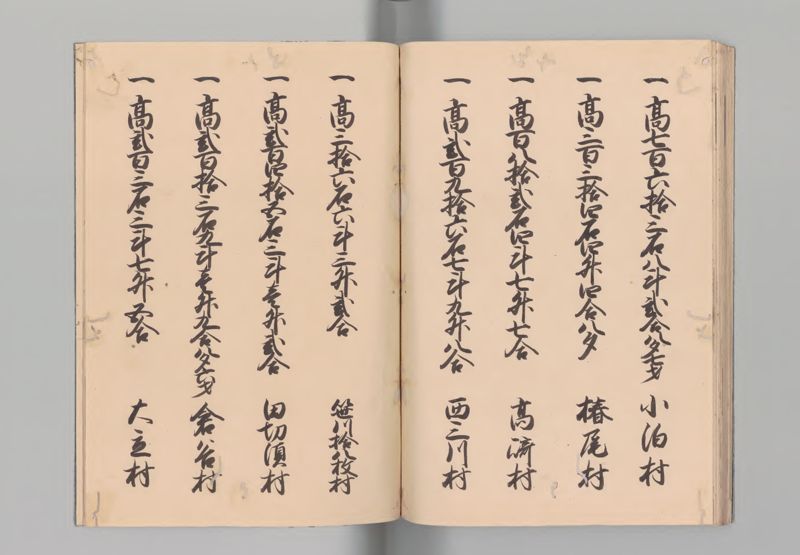 一 高七百六拾三石八斗弐合八夕七才 小泊村
一 高三百三拾四石四升四合八夕 椿尾村
一 高百八拾弐石四斗七升七合 高崎村
一 高弐百九拾六石七斗九升八合 西三川村
一 高三拾六石六斗三升弐合 笹川拾八枚村
一 高弐百四拾五石三斗壱升弐合 田切須村
一 高弐百拾三石九斗壱升九合八夕七才 倉谷村
一 高弐百三石三斗七升五合 大立村